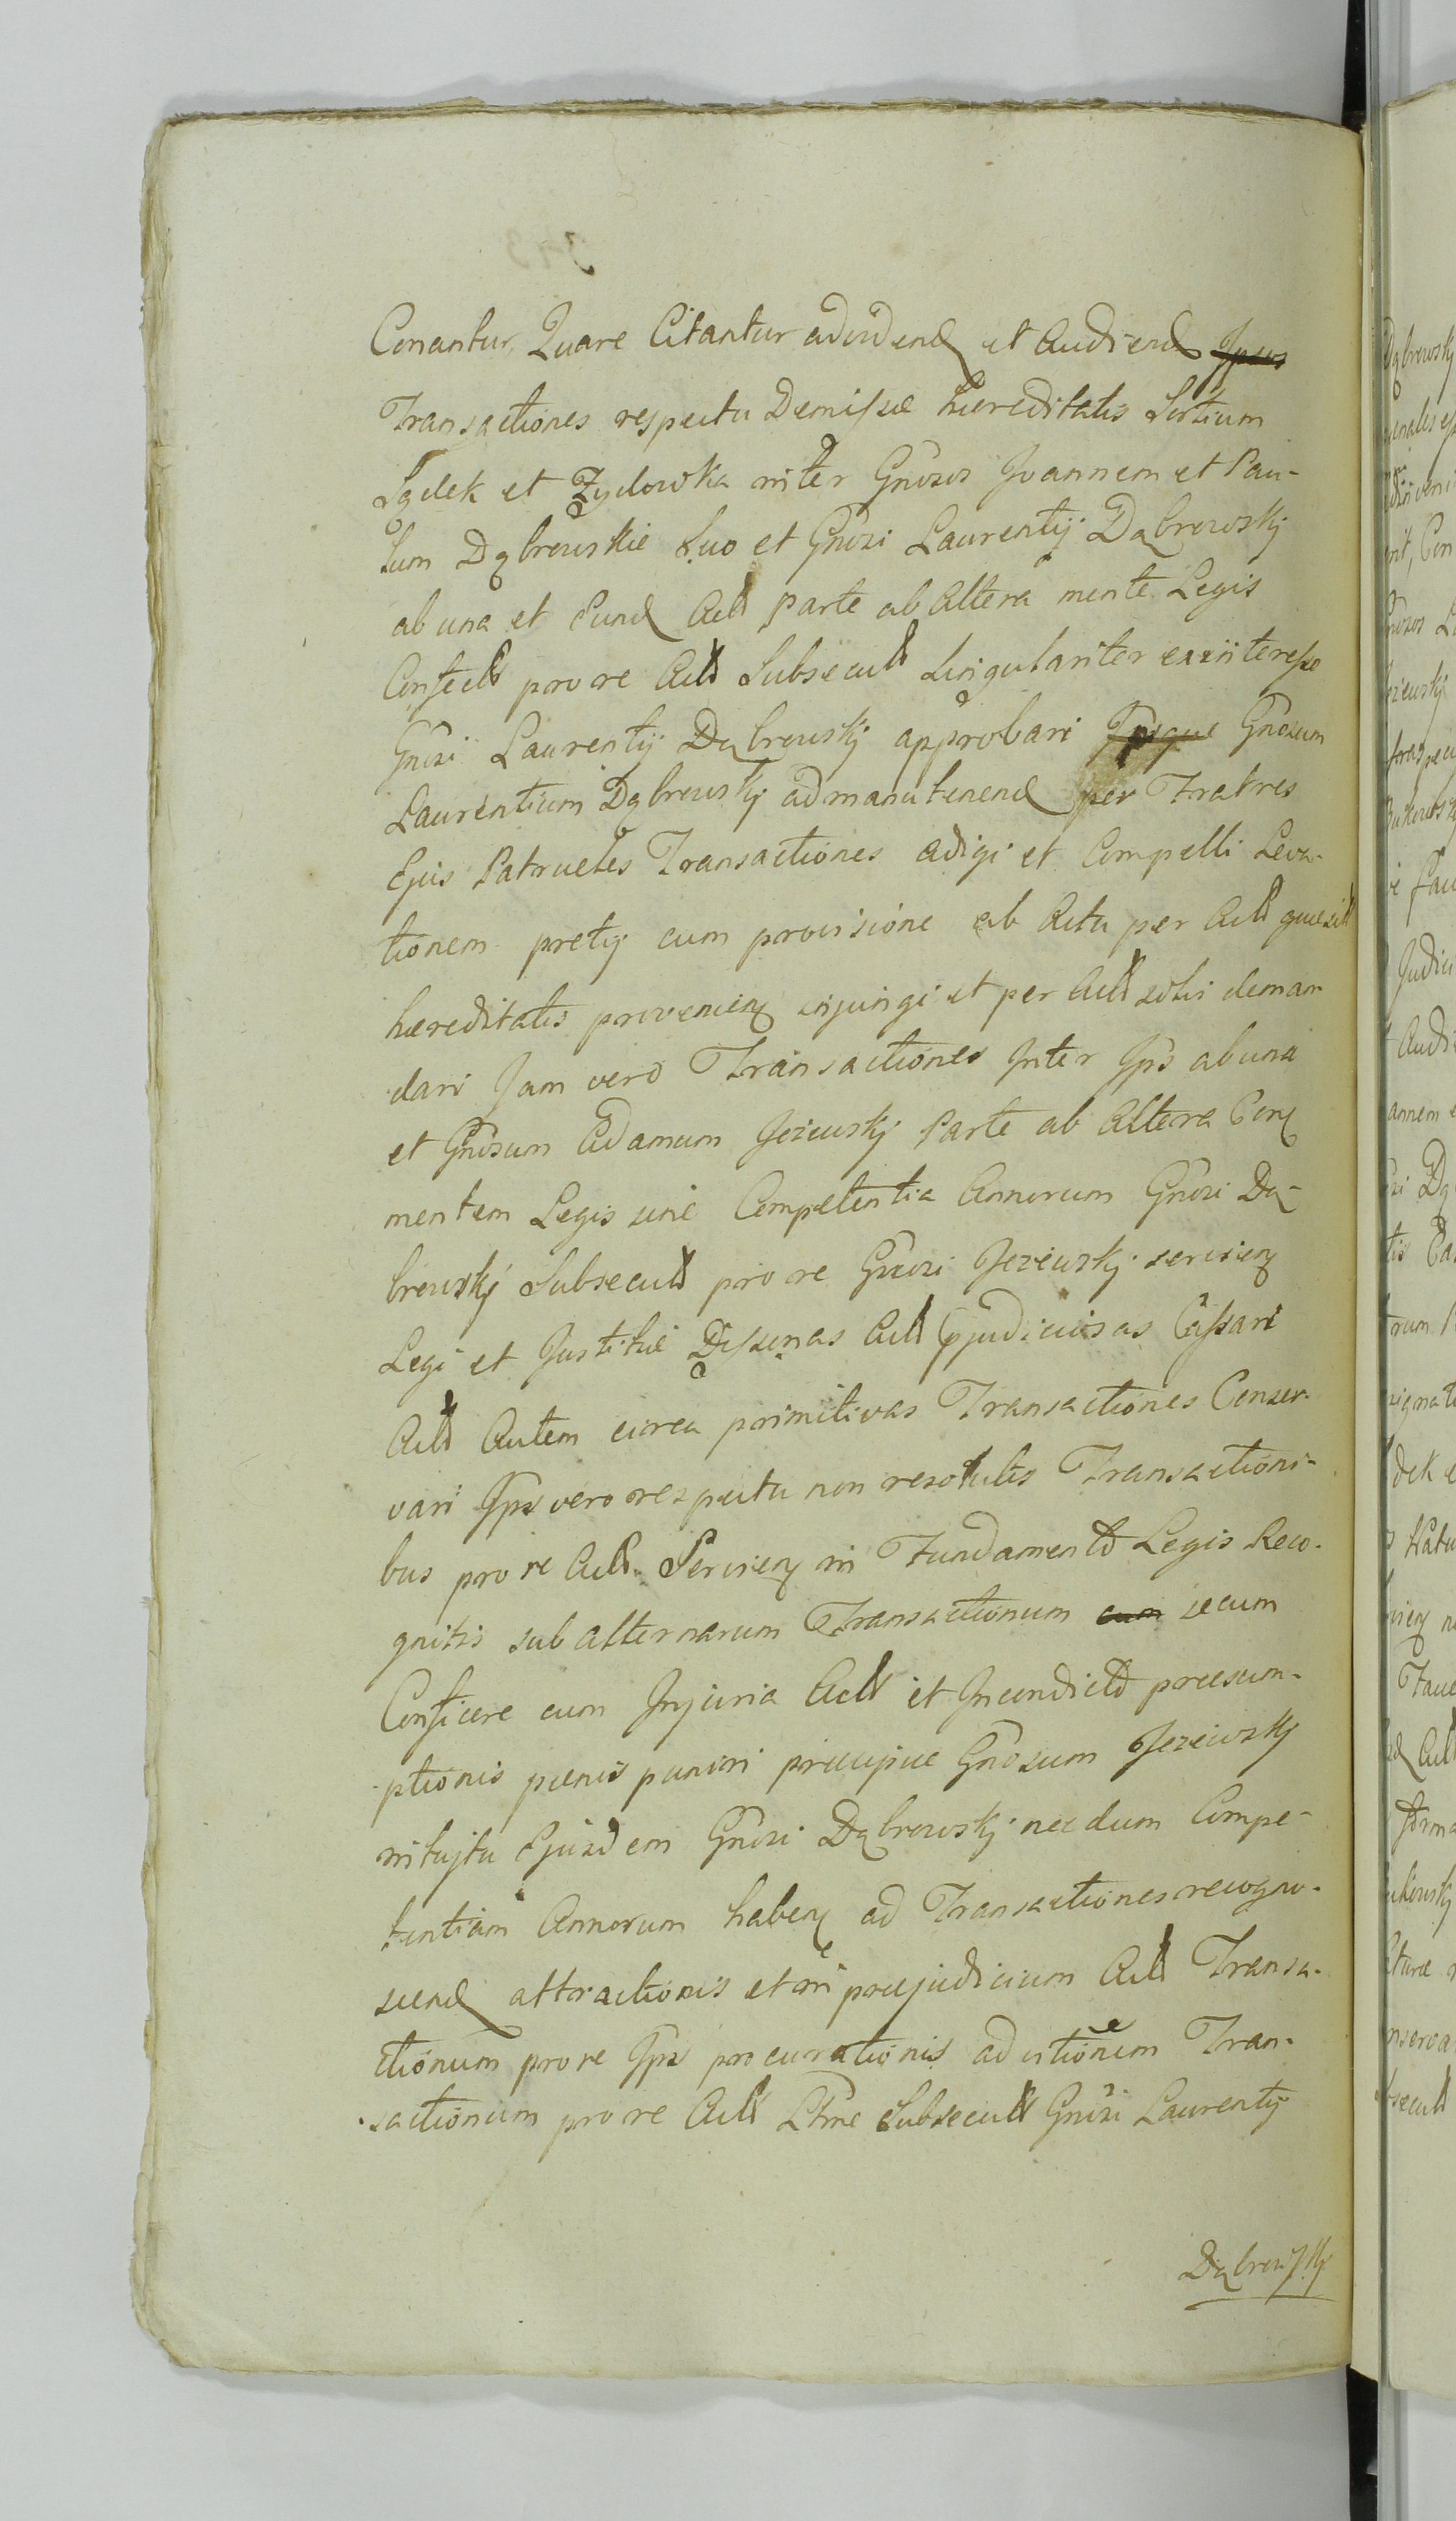 Conantur, Quare Citantur ad vidend et Audiend Ipsos
Transactiones respectu Demissæ hæreditatis Sortium
Sądek et Zydowka inter Gnosos Joannem et Pau-
lum Dąbrowskie suo et Gnosi Laurentij Dąbrowskj
ab una et eund Actt parte ab Altera mente Legis
Confect pro re Actt Subsecutt Singulariter ex interesse
Gnosi Laurentij Dąbrowskj approbari Ipsque Gnosum
Laurentium Dąbrowskj ad manutenend per Fratres
Ejus Patrueles Transactiones adigi et Compelli Leva-
tionem pretij cum provisione ab Actu per Actt quæsitt
hæreditatis provenien injungi et per Actt solvi deman
dari Jam vero Transactiones Inter Ips ab una
et Gnosum Adamum Jeziewskj Parte ab Altera Con
mentem Legis sine Competentia Annorum Gnosi Dą-
browskj Subsecutt pro re Gnosi Jeziewskj servien
Legi et Justitiæ Dissonas Actt Pjudiciosas Cassari
Actt Autem circa primitivas Transactiones Conser-
vari Ips vero respectu non resolutis Transactioni-
bus pro re Actt Servien in Fundamento Legis Reco-
gnitis subalternarum Transactionum cum secum
Conficere cum Injuria Actt et Incondicto præsum-
ptionis pænis puniri præcipue Gnosum Jeziewskj
intuitu Ejusdem Gnosi Dąbrowskj necdum Compe-
tentiam Annorum haben ad Transactiones recogno-
scend attractionis et in præjudicium Actt Transa-
ctionum pro re Ips procurationis ad vitionem Tran-
sactionum pro re Actt Ltme Subsecutt Gnosi Laurentij
Dąbrowskj